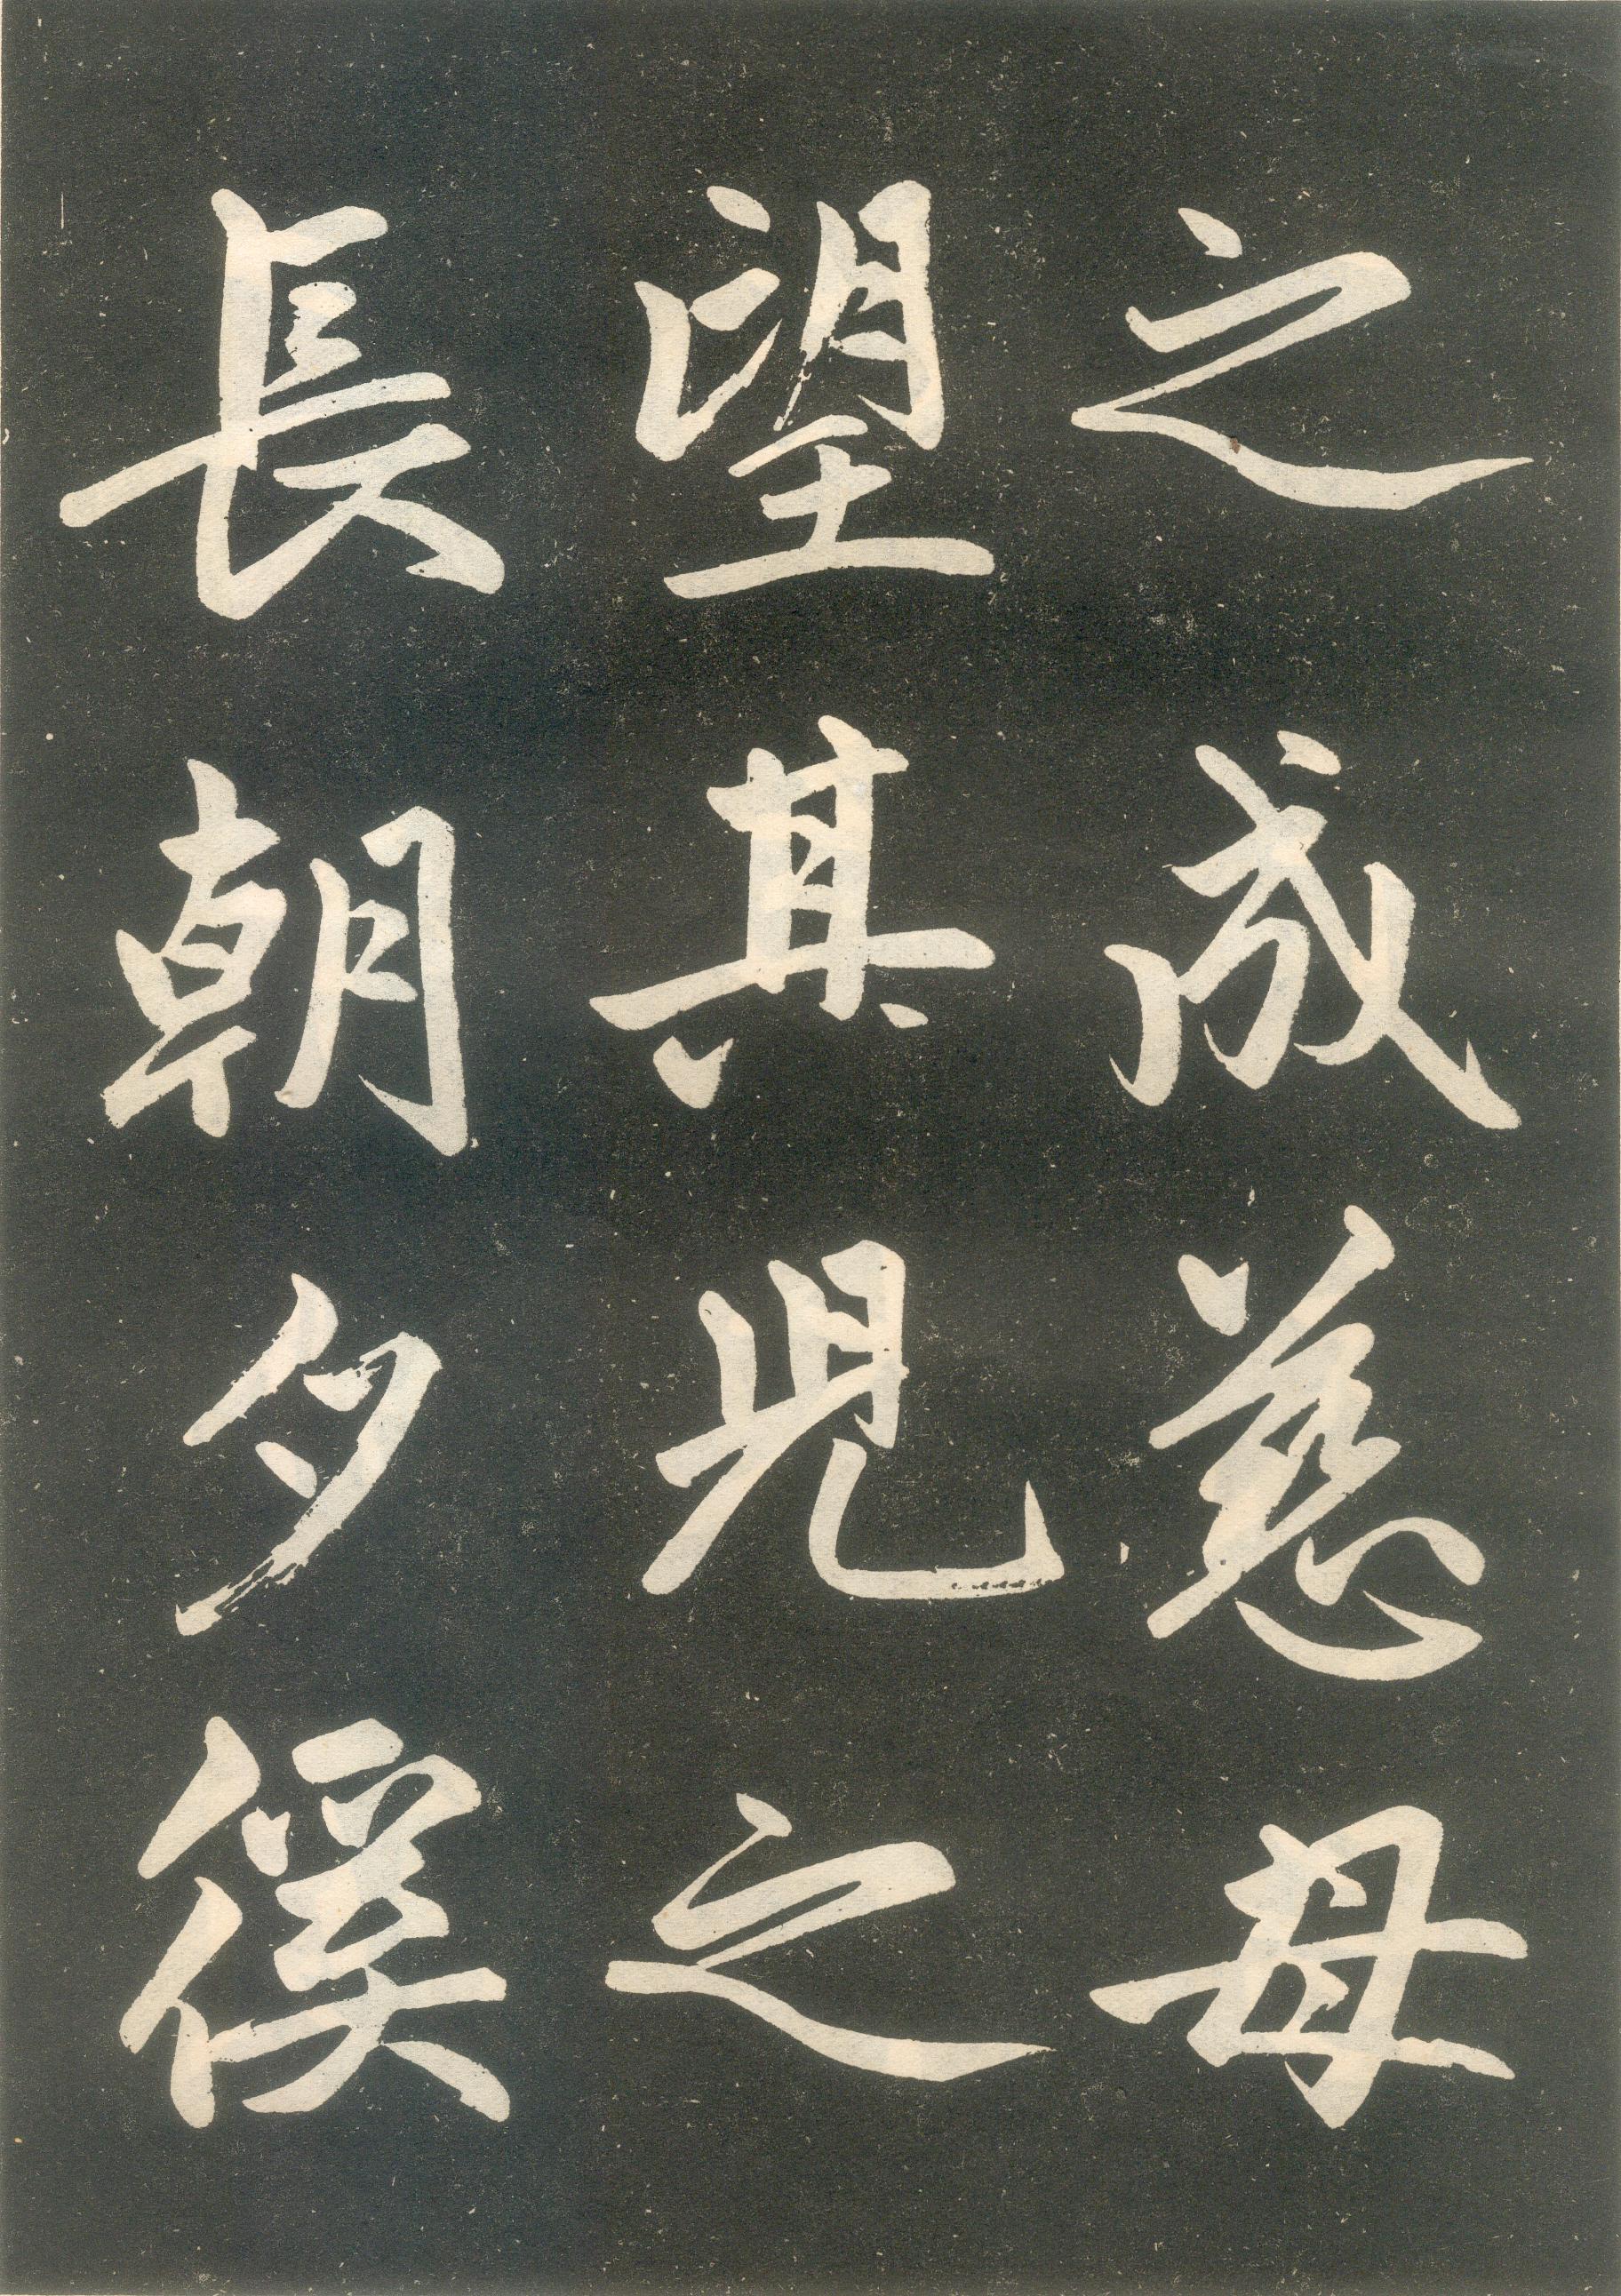 之成慈母
望其兒之
長朝夕傒